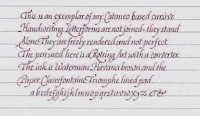 This is an exemplar of my Cataneo based cursive
Handwriting. Letterforms are not joined - they stand
Alone. They are freely rendered and not perfect.
The pen used here is a Rotring Art with a converter.
The ink is Waterman Havana brown and the
Paper Clairefontaine Triomphe lined pad.
a b c d e f g h i j k l m n o p q r s t u v w x y z